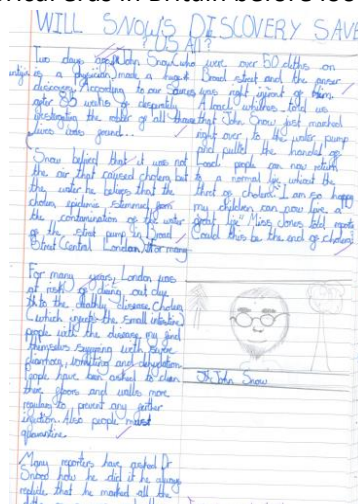 WILL SNOW'S DISCOVERY SAVE
US All?
Two days ago John Snow, who
is a physician made a huge
discovery. According to our sources
after 80 weeks of desperately
lives was found...
Snow belived that it was not
the air that caused cholera but
the water he belives that the
cholera epidemic stemmed from
the contamination of the water
of the street pump in Broad
Street Central London. For many
For many years, London was
at risk of dieing out due
to the deathly disease Cholera
(which injects the small intestine)
people with the disease may find
themselves suffering with severe
diarrhoea, vomiting and dehydration
people have been asked to clean
their floors and walls more
regulary to prevent any further
infection. Also people must
quarantine.
Many reporters have asked Dr
Snow how he did it he always
replide that he marked all the
were over 50 deaths on
Broad street and the answer
was right infront of him.
A local told us
that John Snow just marched
right over to the water pump
and pulled the handel off
people can now return
to a normal life without the
thret of cholera. "I am so happy
my children can now live a
great life" Miss Jones told reporters
Could this be the end of cholera?
Dr John Snow